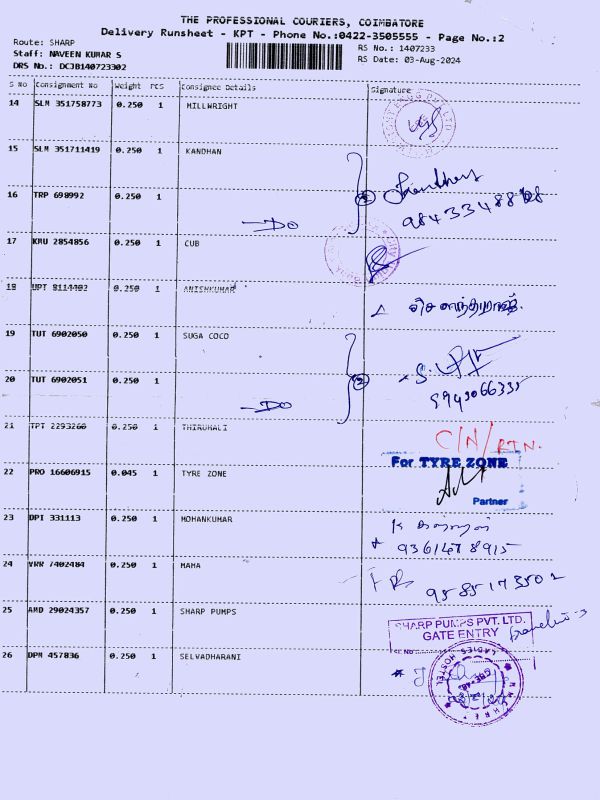 THE PROFESSIONAL COURIERS, COIMBATORE
Delivery Runsheet - KPT - Phone No.:0422-3505555 - Page No.:2
Route: SHARP
RS No.: 1407233
Staff: NAVEEN KUMAR S
RS Date: 03-Aug-2024
DRS No.: DCJB140723302
S No Consignment No Weight PCS Consignee Details Signature
14 SLM 351758773 0.250 1 MILLWRIGHT
15 SLM 351711419 0.250 1 KANDHAN
16 TRP 698992 0.250 1
DO
17 KRU 2854856 0.250 1 CUB
18 UPT 8114402 0.250 1 ANISHKUMAR
19 TUT 6902050 0.250 1 SUGA COCO
20 TUT 6902051 0.250 1
DO 9943066335
21 TPT 2293260 0.250 1 THIRUMALI
C/N/RTN.
22 PRO 16606915 0.045 1 TYRE ZONE
For TYRE ZONE
Partner
23 DPI 331113 0.250 1 MOHANKUMAR
9361478915
24 VRR 7402484 0.250 1 MAHA
9585173502
25 AMD 29024357 0.250 1 SHARP PUMPS
SHARP PUMPS PVT. LTD.
GATE ENTRY
26 DPM 457836 0.250 1 SELVADHARANI
LADIES HOSTEL